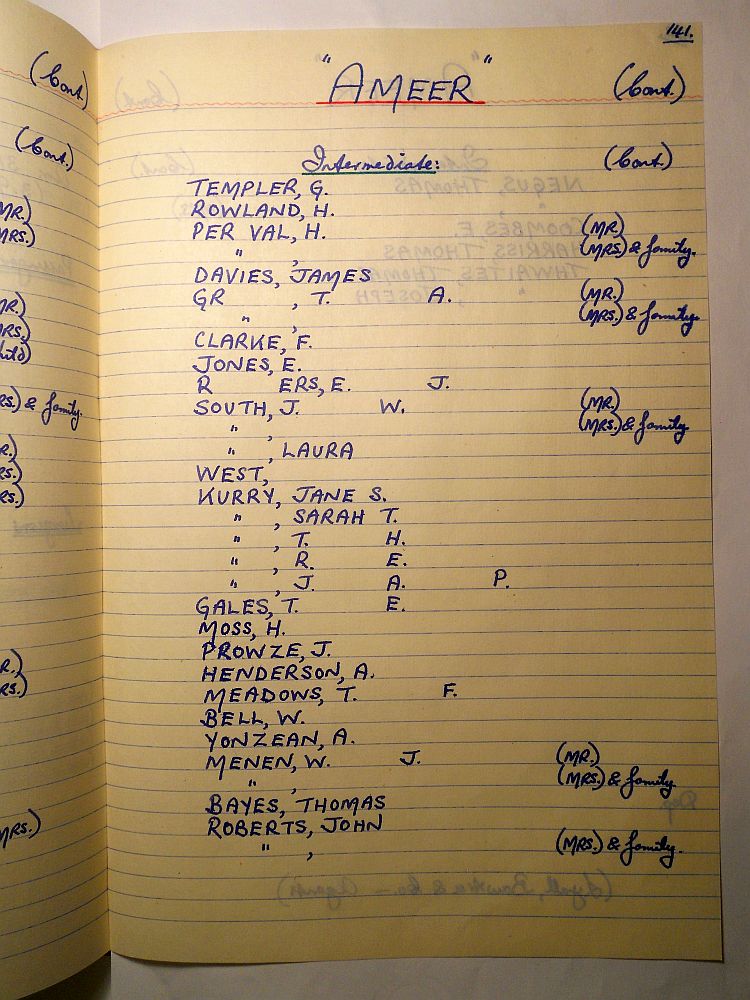 141.
"AMEER" (Cont.)
Intermediate: (Cont.)
TEMPLER, G.
ROWLAND, H.
PER VAL, H. (MR.)
" , (MRS.) & family.
DAVIES, JAMES
GR , T. A. (MR.)
" , (MRS.) & family
CLARKE, F.
JONES, E.
R ERS, E. J.
SOUTH, J. W. (MR.)
" , (MRS.) & family
" , LAURA
WEST,
KURRY, JANE S.
" , SARAH T.
" , T. H.
" , R. E.
" , J. A. P.
GALES, T. E.
MOSS, H.
PROWZE, J.
HENDERSON, A.
MEADOWS, T. F.
BELL, W.
YONZEAN, A.
MENEN, W. J. (MR.)
" , (MRS.) & family
BAYES, THOMAS
ROBERTS, JOHN
" , (MRS.) & family.
(Cont.)
(Cont.)
MR.)
MRS.)
R.)
RS.)
hild)
RS.) & family.
R.)
RS.)
RS.)
R.)
RS.)
MRS.)